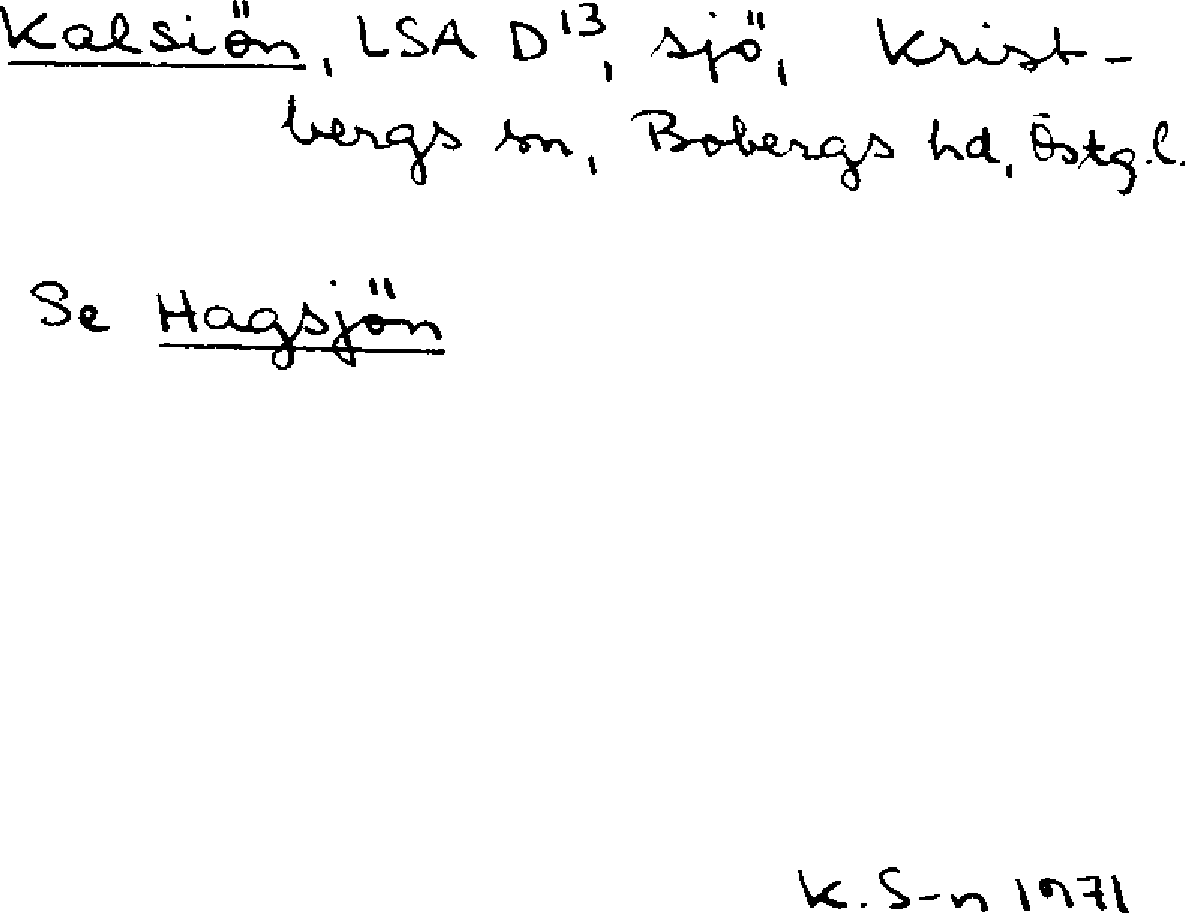 Kalsiön, LSA D¹³, sjö, Krist-
bergs sn, Bobergs hd, Östg.l.
Se Hagsjön
K. S-n 1971